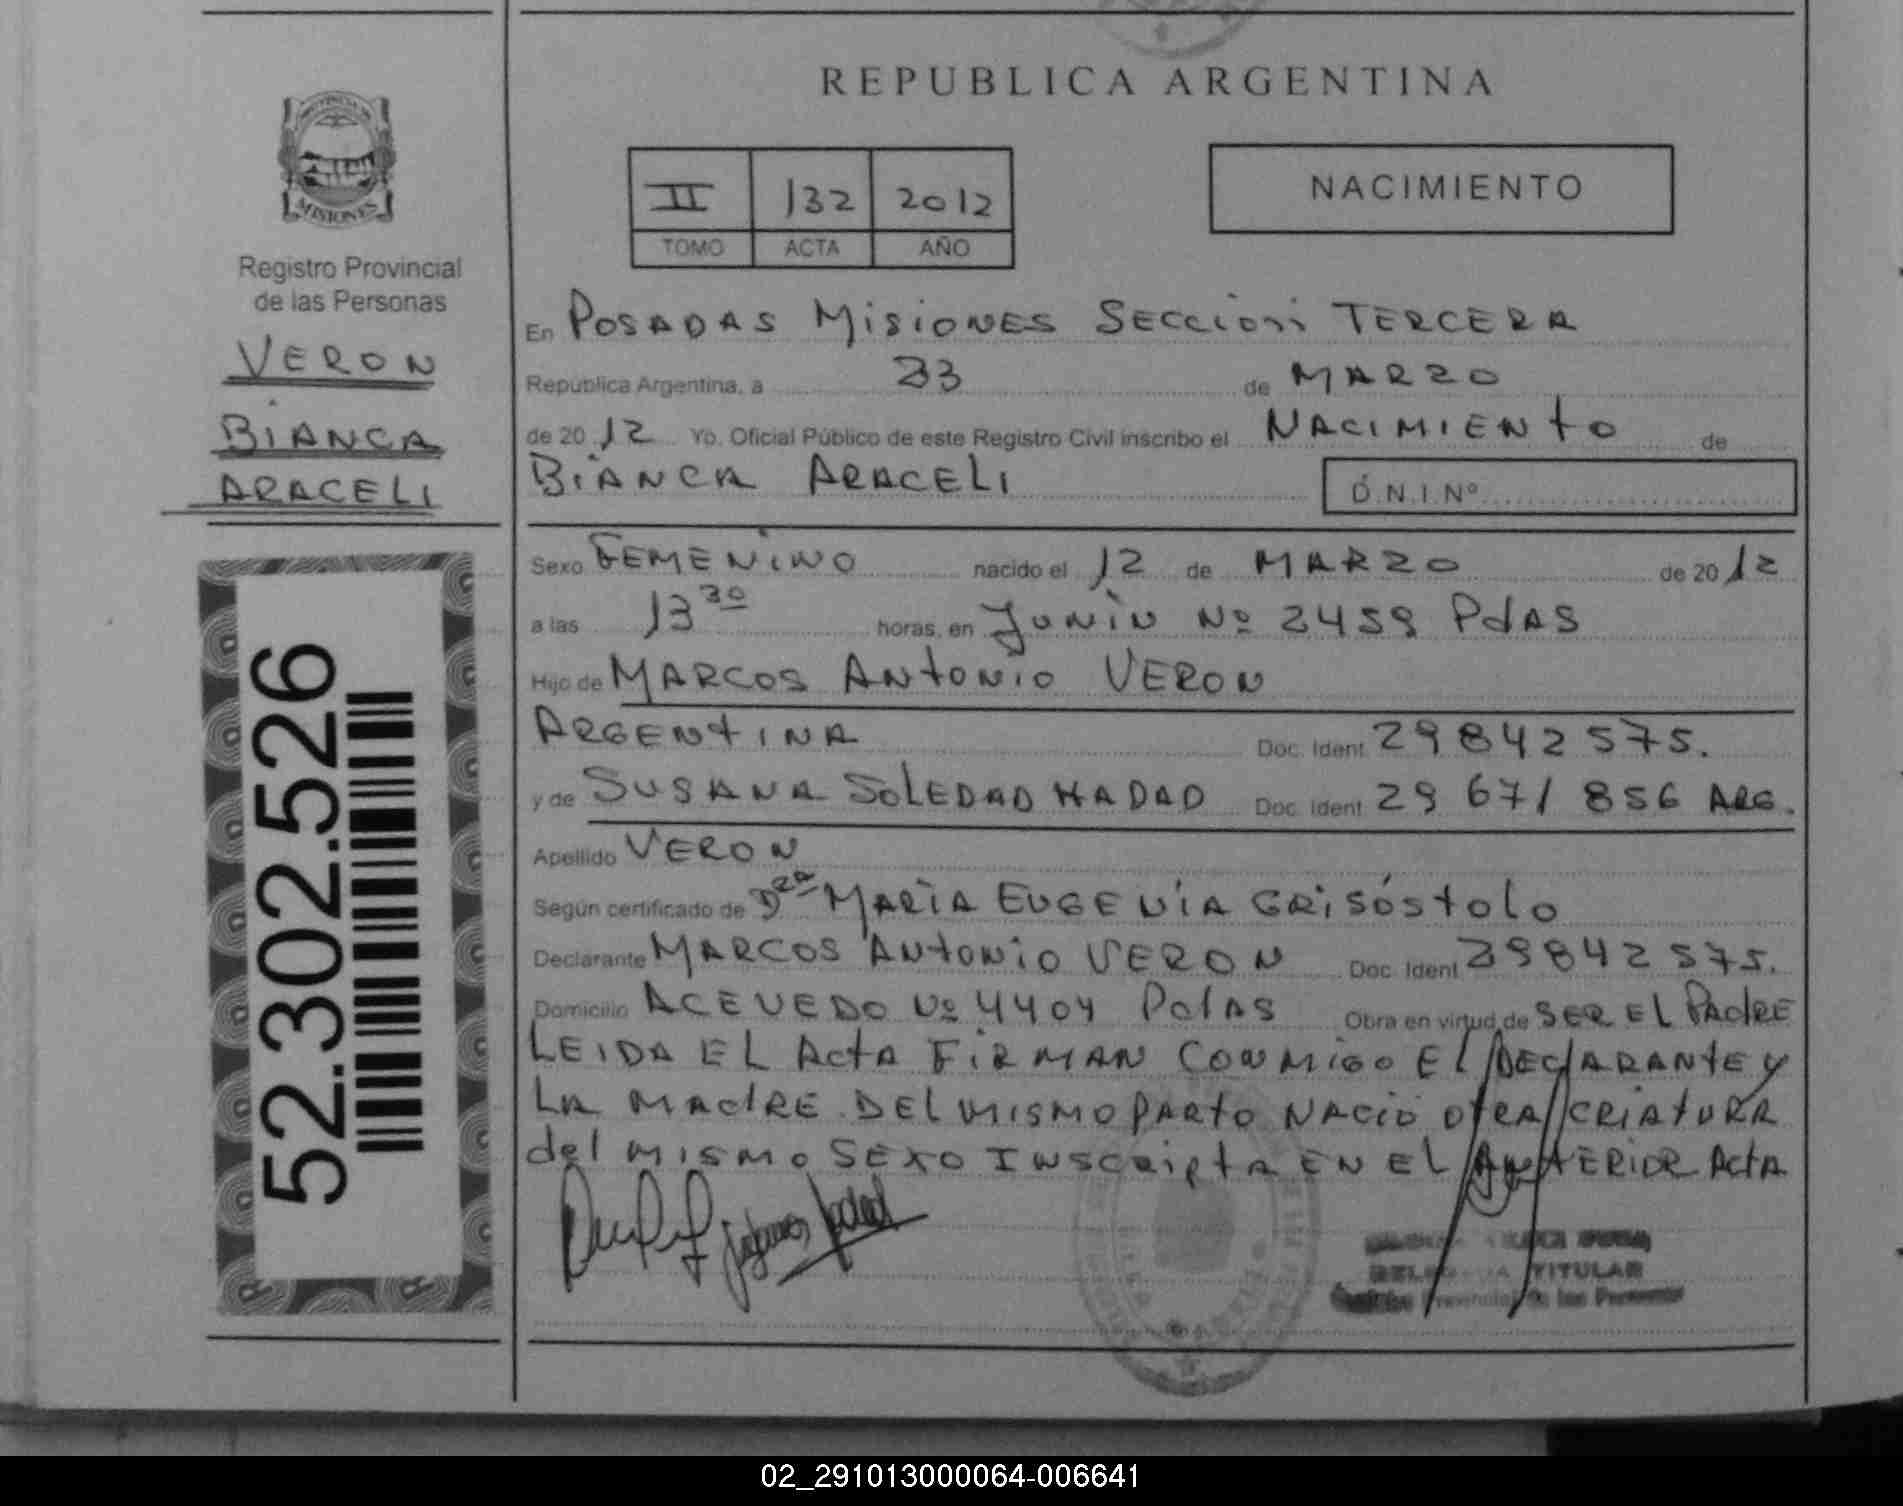 REPUBLICA ARGENTINA
PROVINCIA DE
MISIONES
Registro Provincial
de las Personas
VERON
BIANCA
ARACELI
52.302.526
II 132 2012
TOMO ACTA AÑO
NACIMIENTO
En POSADAS MISIONES SECCION TERCERA
República Argentina, a 23 de MARZO
de 20 12 Yo, Oficial Público de este Registro Civil inscribo el NACIMIENTO de
BIANCA ARACELI D.N.I.Nº
Sexo FEMENINO nacido el 12 de MARZO de 20 12
a las 13 30 horas, en JUNIN Nº 2459 PdAS
Hijo de MARCOS ANTONIO VERON
ARGENTINA Doc. Ident 29842575.
y de SUSANA SOLEDAD HADAD Doc. Ident 29 671 856 ARG.
Apellido VERON
Según certificado de DRA MARIA EUGENIA GRISÓSTOLO
Declarante MARCOS ANTONIO VERON Doc. Ident 29842575.
Domicilio ACEVEDO Nº 4404 PdAS Obra en virtud de SER EL PADRE
LEIDA EL ACTA FIRMAN CONMIGO EL DECLARANTE Y
LA MADRE. DEL MISMO PARTO NACIÓ OTRA CRIATURA
del MISMO SEXO INSCRIPTA EN EL ANTERIOR ACTA
TITULAR
Provincial de las Personas
02_291013000064-006641